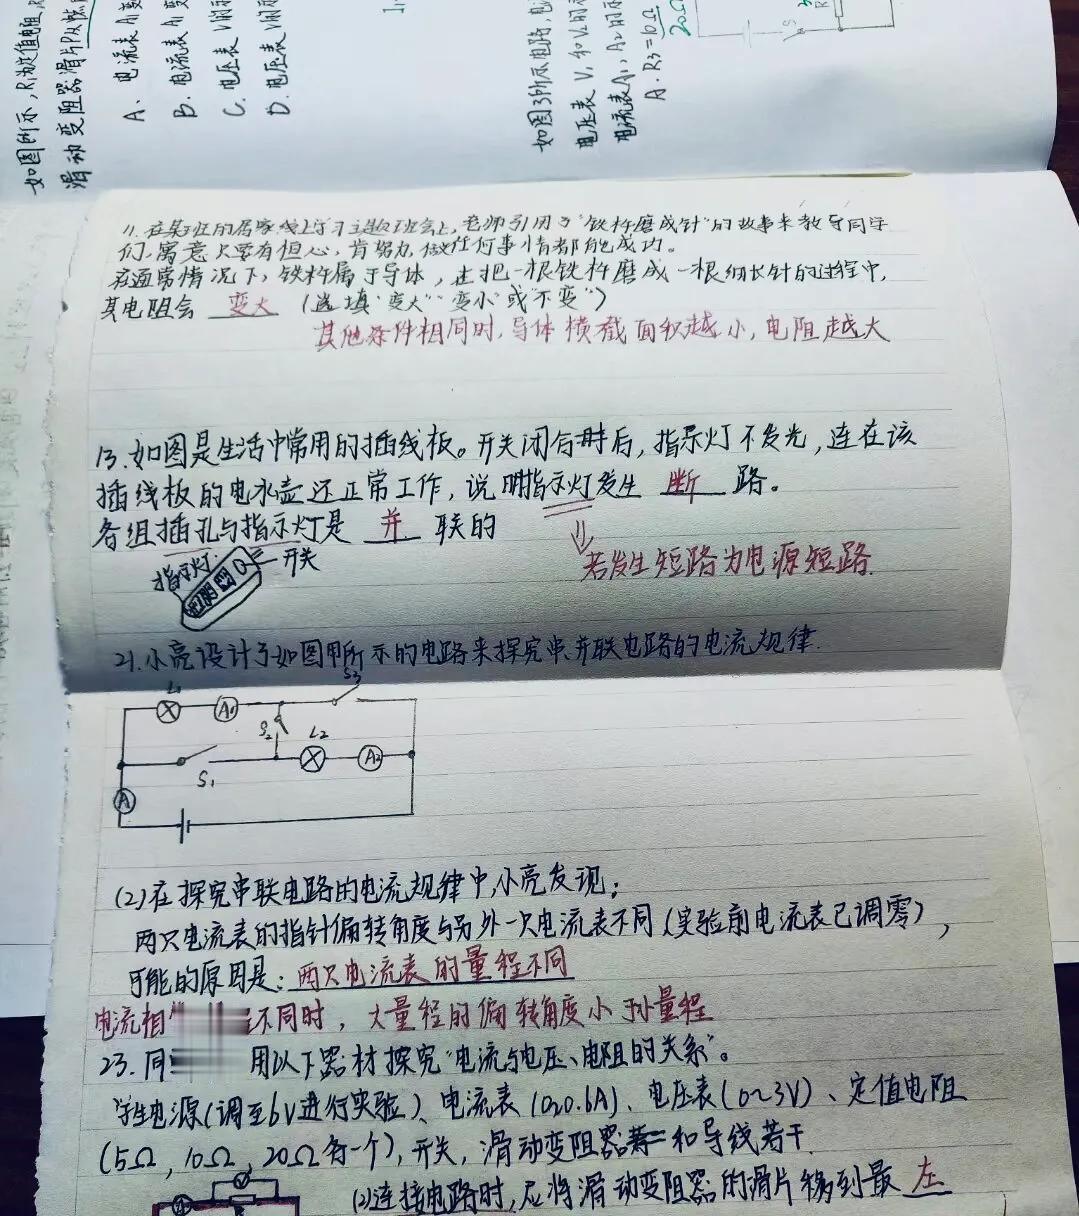 如图所示，R1为定值电阻，
滑动变阻器滑片P从
A、电流表A1
B、电流表A
C、电压表V的示
D、电压表V的示
如图3所示电路，电
电压表V1和V2的示
电流表A1、A2的示
A、R3=10Ω
20Ω
S
R
11.在某班的居家线上学习主题班会上，老师引用了"铁杵磨成针"的故事来教导同学
们，寓意只要有恒心，肯努力，做任何事情都能成功。
在通常情况下，铁杵属于导体，在把一根铁杵磨成一根细长针的过程中，
其电阻会 变大 (选填"变大""变小"或"不变")
其他条件相同时，导体横截面积越小，电阻越大
13.如图是生活中常用的插线板。开关闭合时后，指示灯不发光，连在该
插线板的电水壶还正常工作，说明指示灯发生 断 路。
各组插孔与指示灯是 并 联的
若发生短路为电源短路.
指示灯
开关
21.小亮设计了如图甲所示的电路来探究串、并联电路的电流规律.
L1
A1
S3
S2
L2
A2
S1
A
(2)在探究串联电路的电流规律中，小亮发现；
两只电流表的指针偏转角度与另外一只电流表不同(实验前电流表已调零)，
可能的原因是：两只电流表的量程不同
电流相 不同时，大量程的偏转角度小于小量程
23.同 用以下器材探究"电流与电压、电阻的关系"。
学生电源(调至6V进行实验)、电流表(0~0.6A)、电压表(0~3V)、定值电阻
(5Ω，10Ω，20Ω各一个)，开关，滑动变阻器 和导线若干
(2)连接电路时，应将滑动变阻器的滑片移到最 左